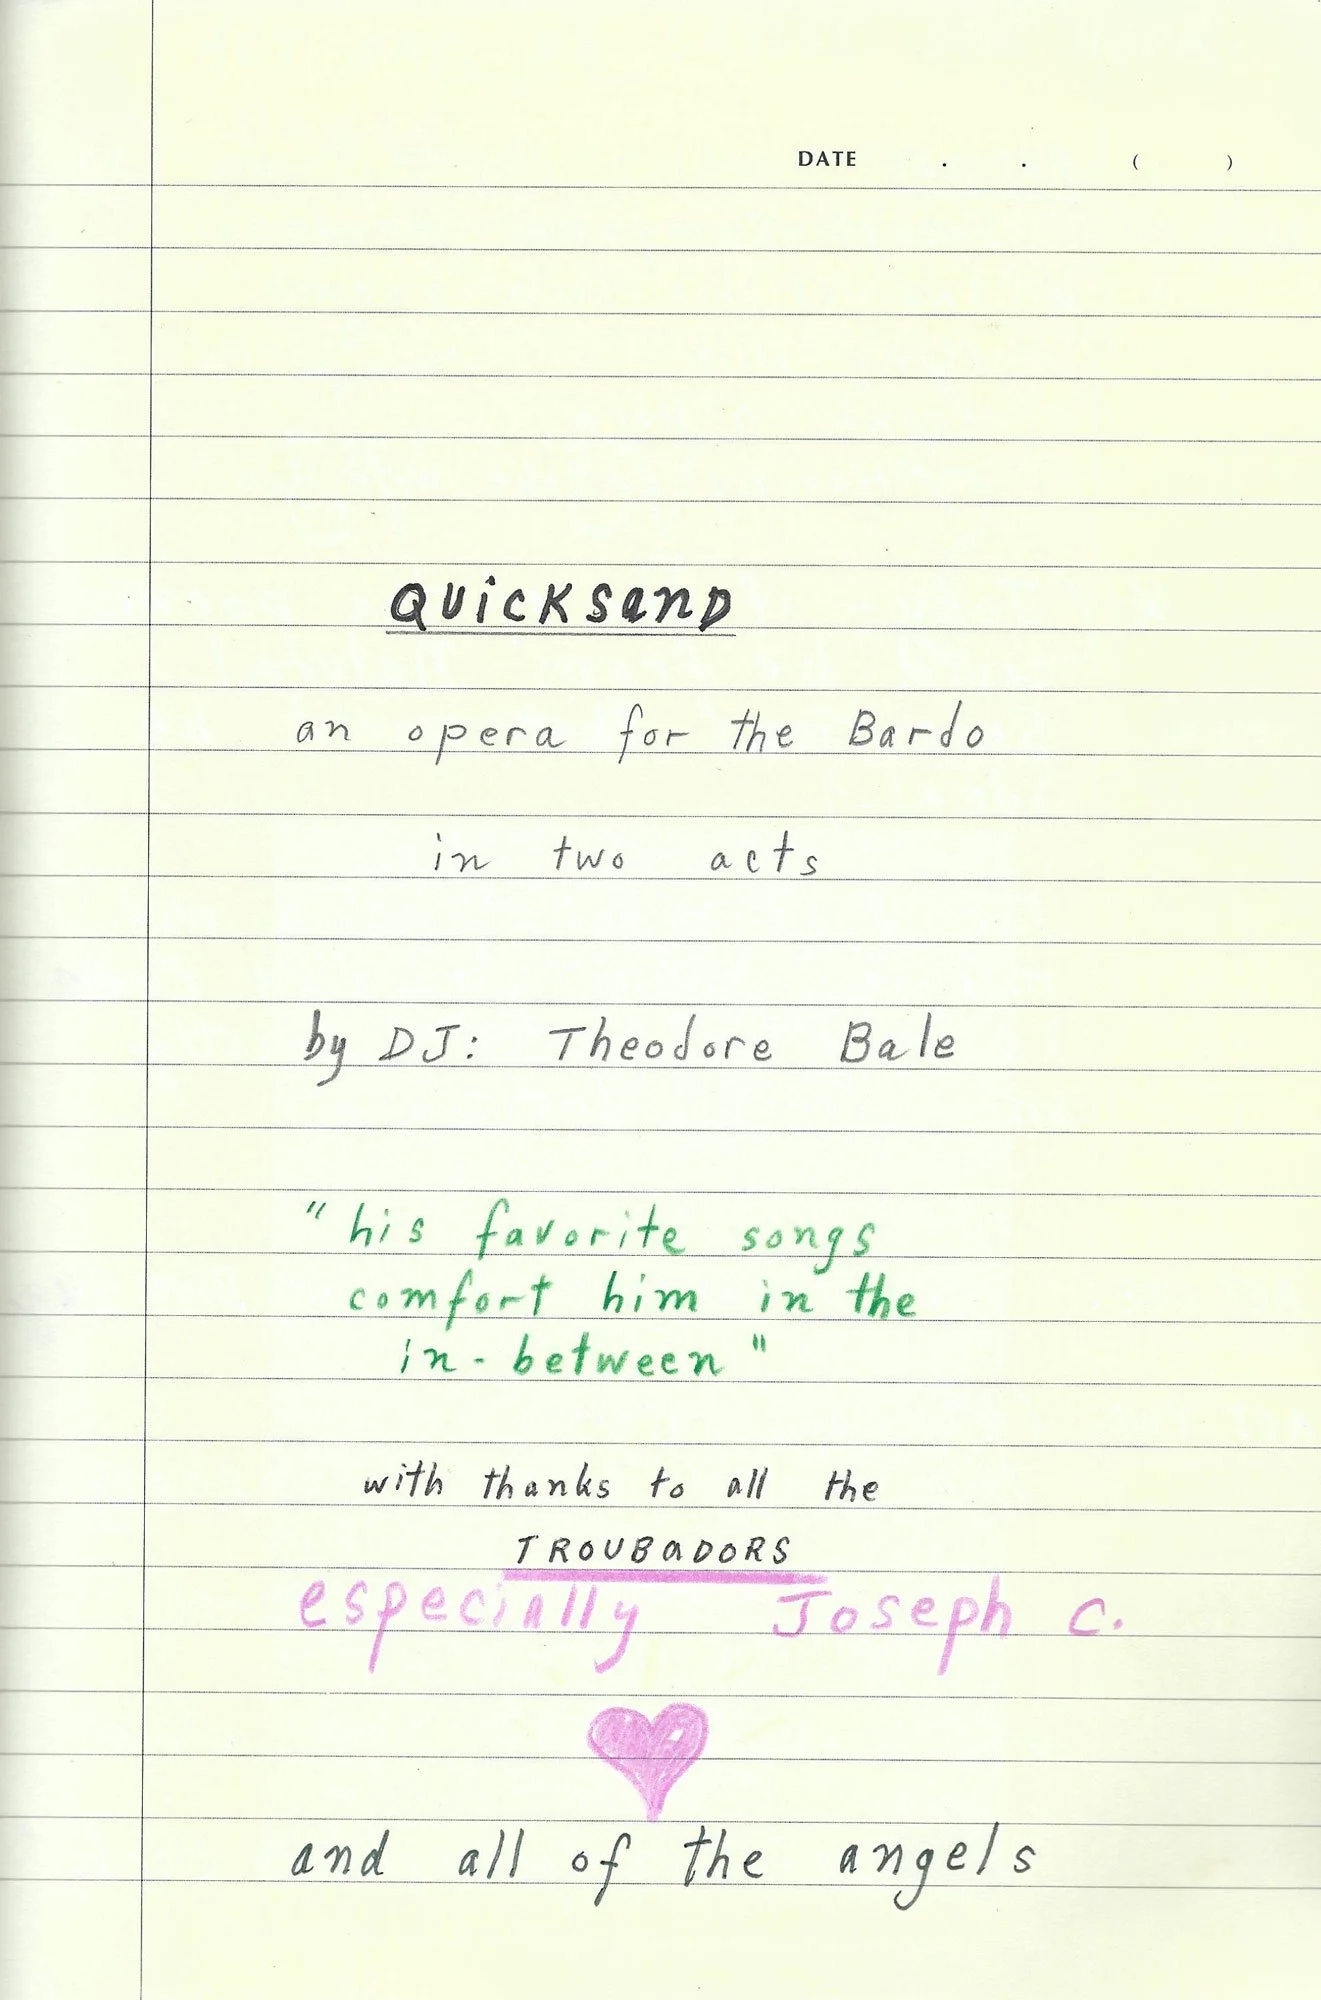 DATE . . ( )
QUicKSanD
an opera for the Bardo
in two acts
by DJ: Theodore Bale
"his favorite songs
comfort him in the
in-between"
with thanks to all the
TROUBaDORS
especially Joseph C.
and all of the angels